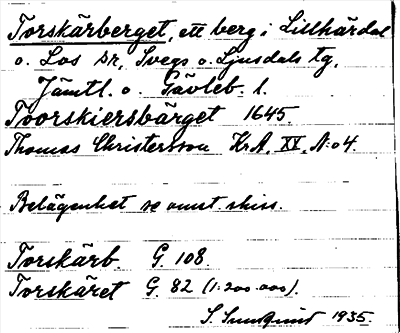 Torskärberget, ett berg i Lillhärdal
o. Los sr, Svegs o. Ljusdals tg,
Jämtl. o. Gävleb. l.
Toorskiersbärget 1645
Thomas Christersson KrA. XV. N:o 4.
Belägenhet se omst. skiss.
Torskärb. G 108.
Torskäret G. 82 (1:200.000).
S Sundquist 1935.